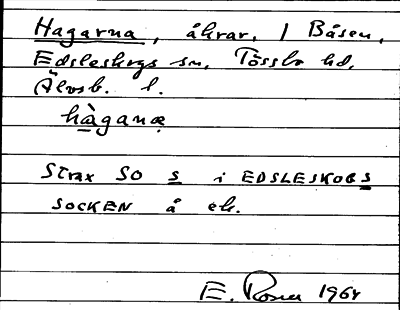 Hagarna, åkrar, / Båsen,
Edsleskogs sn, Tössbo hd,
Älvsb. l.
hàganæ
Strax SO s i EDSLESKOGS
SOCKEN å ek.
E. Rosen 1964